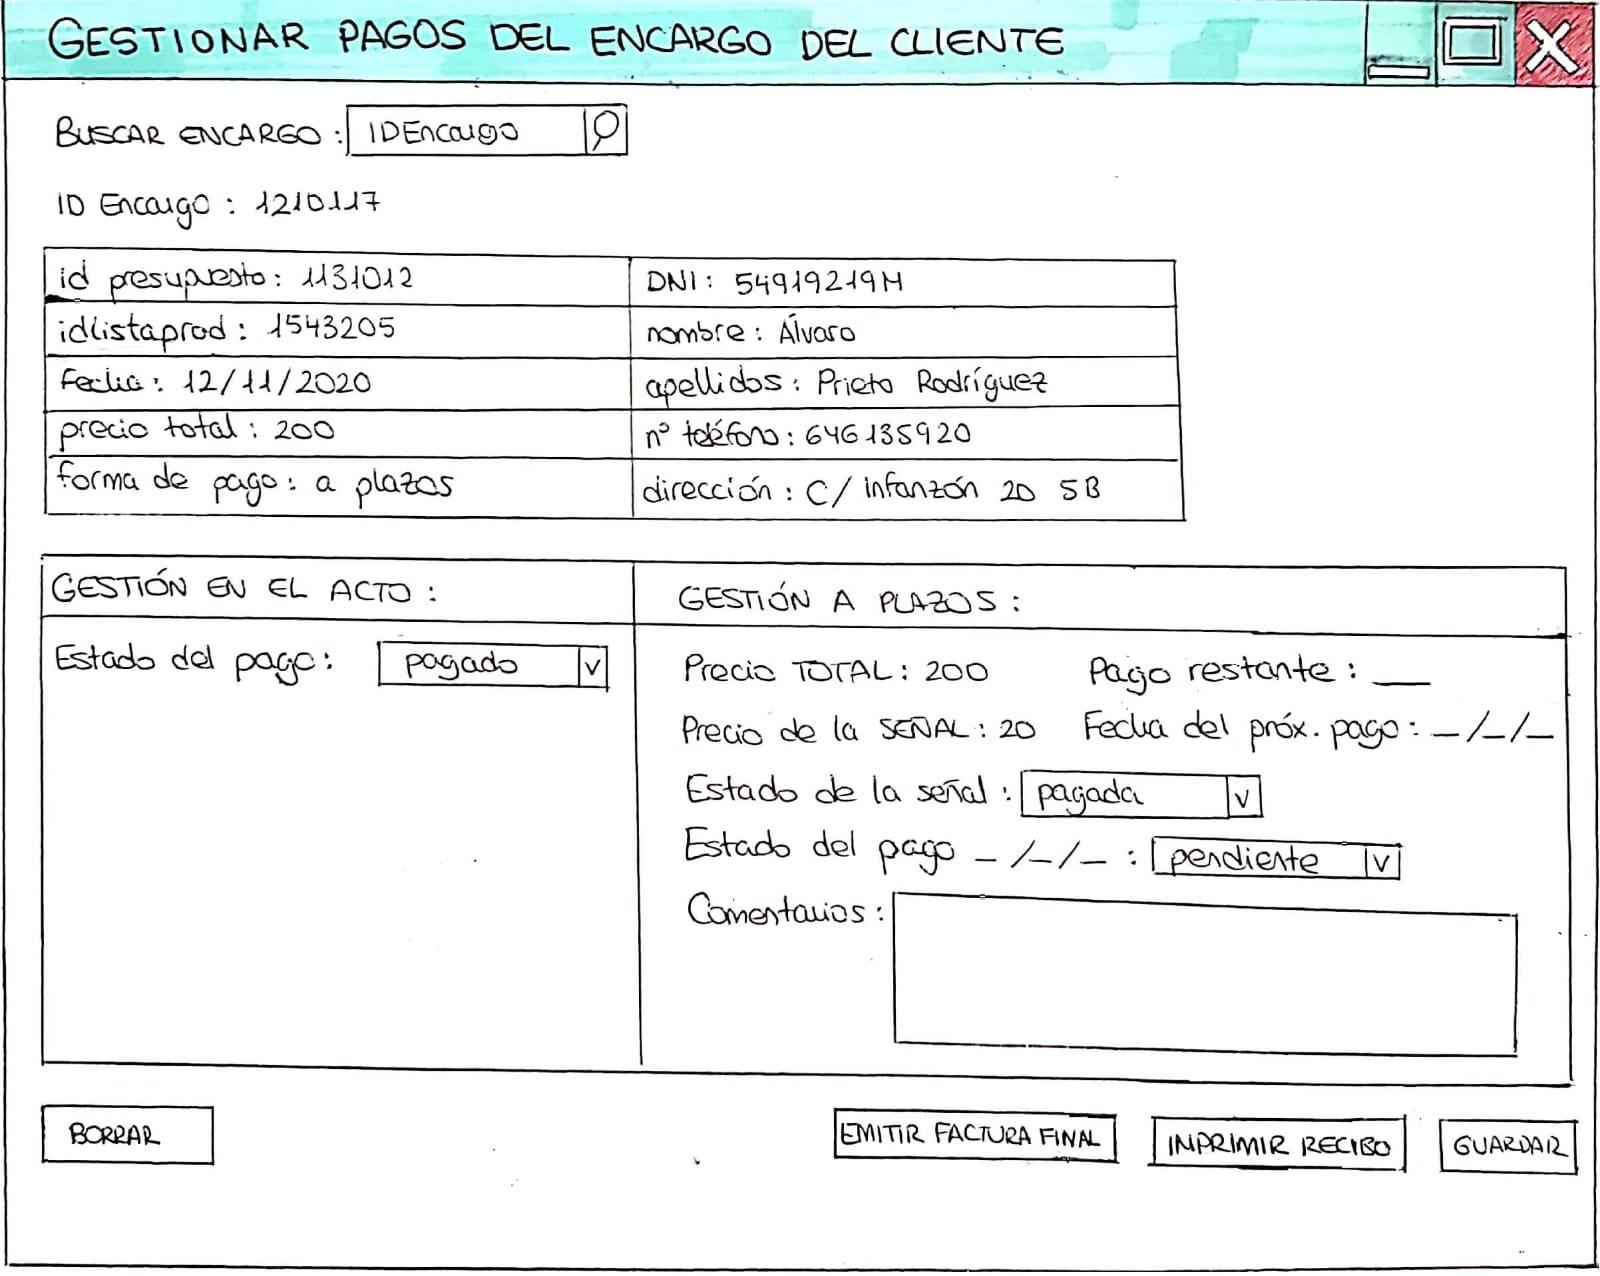 GESTIONAR PAGOS DEL ENCARGO DEL CLIENTE
BUSCAR ENCARGO: IDEncargo
ID Encargo: 1210117
id presupuesto: 1131012
DNI: 54919219M
idlistaprod: 1543205
nombre: Álvaro
Fecha: 12/11/2020
apellidos: Prieto Rodríguez
precio total: 200
nº teléfono: 646135920
forma de pago: a plazos
dirección: C/ infanzón 20 5B
GESTIÓN EN EL ACTO:
GESTIÓN A PLAZOS:
Estado del pago: pagado v
Precio TOTAL: 200 Pago restante: __
Precio de la SEÑAL: 20 Fecha del próx. pago: _/_/_
Estado de la señal: pagada v
Estado del pago _/_/_: pendiente v
Comentarios:
BORRAR
EMITIR FACTURA FINAL
INPRIMIR RECIBO
GUARDAR